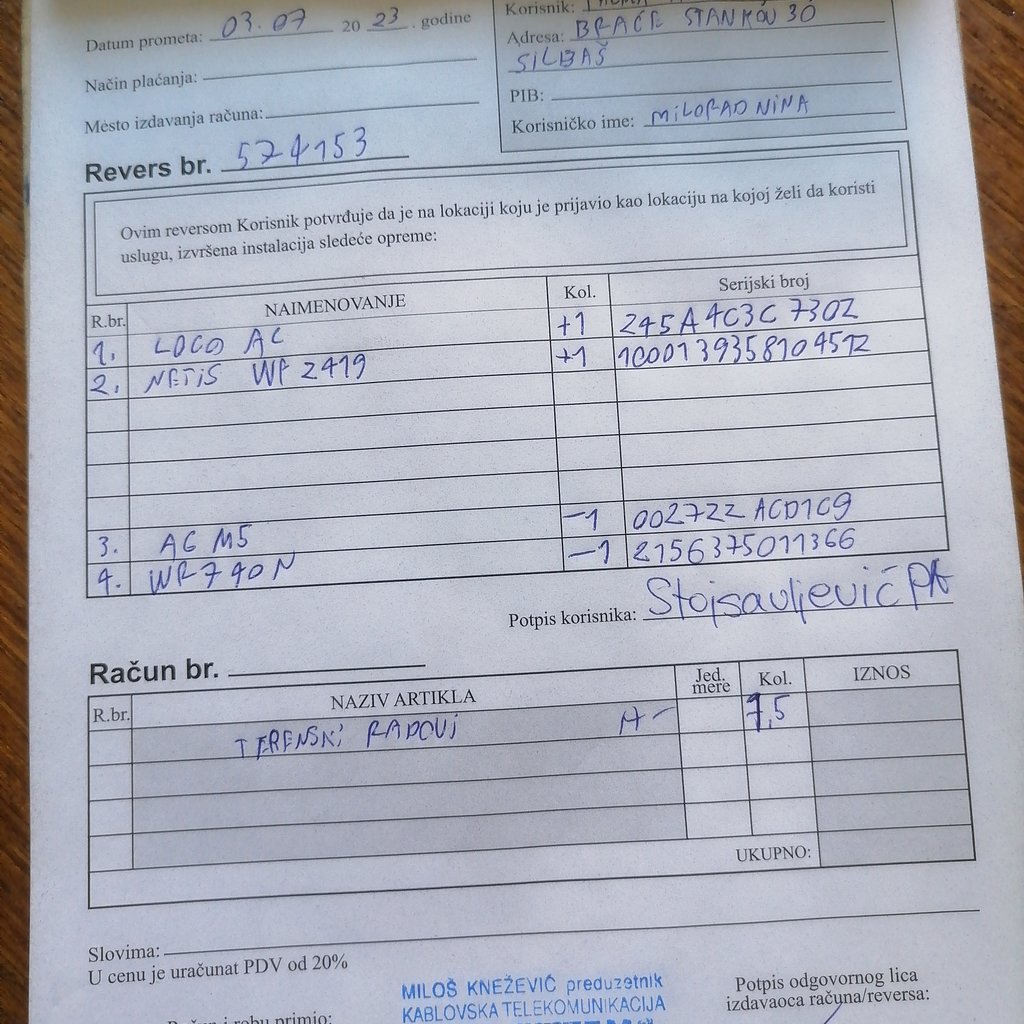 Datum prometa: 03.07 2023. godine
Korisnik:
Adresa: BRAĆE STANKOV 30
SILBAŠ
Način plaćanja:
PIB:
Mesto izdavanja računa:
Korisničko ime: MILORAD NINA
Revers br. 574153
Ovim reversom Korisnik potvrđuje da je na lokaciji koju je prijavio kao lokaciju na kojoj želi da koristi
uslugu, izvršena instalacija sledeće opreme:
R.br. NAIMENOVANJE Kol. Serijski broj
1. LOCO AC +1 245A4C3C7302
2. NETIS WF 2419 +1
3. AG M5 -1 002722ACD1C9
4. WR740N -1 2156375011366
Potpis korisnika: Stojsavljević
Račun br.
R.br. NAZIV ARTIKLA Jed. mere Kol. IZNOS
TERENSKI RADOVI H- 1,5
UKUPNO:
Slovima:
U cenu je uračunat PDV od 20%
MILOŠ KNEŽEVIĆ preduzetnik
KABLOVSKA TELEKOMUNIKACIJA
Potpis odgovornog lica
izdavaoca računa/reversa:
i robu primio: